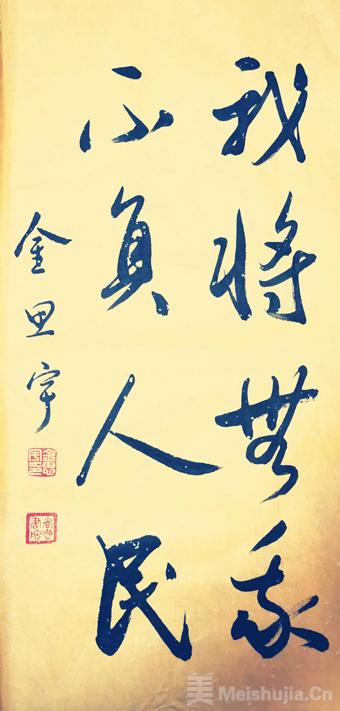 我将無我
不負人民
金思宇
美 Meishujia.Cn